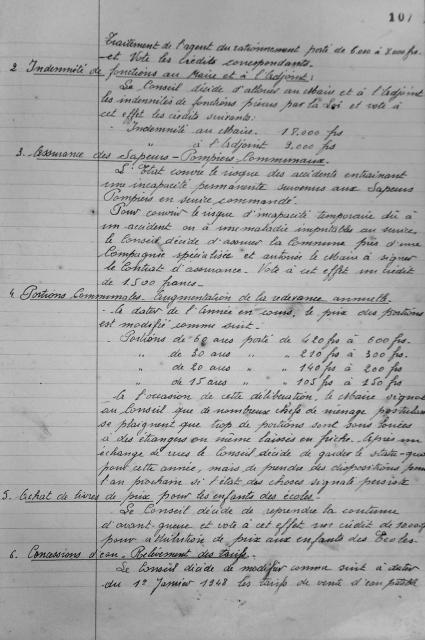 107
Traitement de l'agent du rationnement porté de 6.000 à 8.000 frs.
et Vote les crédits correspondants.
2. Indemnité de fonctions au Maire et à l'Adjoint:
Le Conseil décide d'allouer au Maire et à l'Adjoint
les indemnités de fonctions prévues par la Loi et vote à
cet effet les crédits suivants:
- Indemnité au Maire. 18.000 frs
" à l'Adjoint 9.000 frs
3. Assurance des Sapeurs-Pompiers Communaux.
L'Etat couvre le risque des accidents entraînant
une incapacité permanente survenus aux Sapeurs
Pompiers en service commandé.
Pour couvrir le risque d'incapacité temporaire dû à
un accident ou à une maladie imputables au service
le Conseil décide d'assurer la Commune près d'une
Compagnie spécialisée et autorise le Maire à signer
le Contrat d'assurance. Vote à cet effet un crédit
de 1500 francs.
4. Portions Communales. Augmentation de la redevance annuelle.
- A dater de l'Année en cours, le prix des portions
est modifié comme suit.
- Portions de 60 ares porté de 420 frs à 600 frs.
" de 30 ares " " 210 frs à 300 frs.
" de 20 ares " " 140 frs à 200 frs
" de 15 ares " " 105 frs à 150 frs
A l'occasion de cette délibération, le Maire
au Conseil que de nombreux chefs de ménage
se plaignent que trop de portions sont sous louées
à des étrangers ou même laissées en friche. Après un
échange de vues le Conseil décide de garder le statu-quo
pour cette année, mais de prendre des dispositions pour
l'an prochain si l'état des choses signalé persiste
5. Achat de livres de prix pour les enfants des écoles.
- Le Conseil décide de reprendre la coutume
d'avant-guerre et vote à cet effet un crédit de
pour attribution de prix aux enfants des Ecoles
6. Concessions d'eau. Relèvement des tarifs.
Le Conseil décide de modifier comme suit à dater
du 1er Janvier 1948 les tarifs de vente d'eau potable